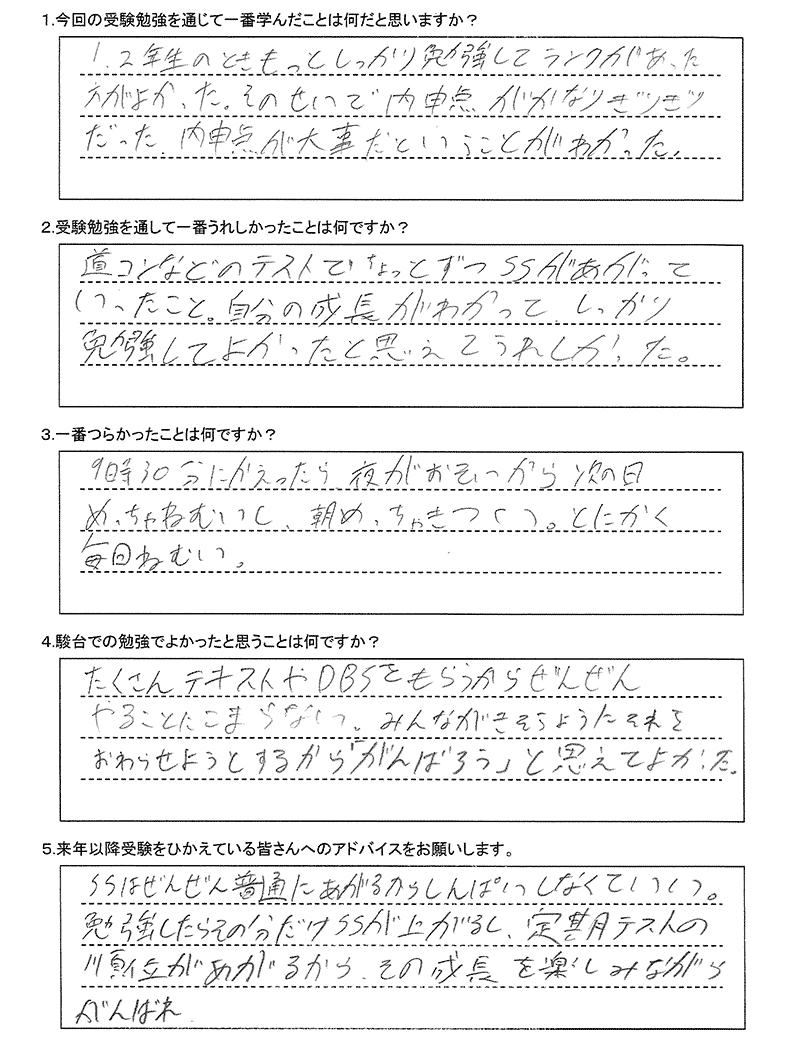 1.今回の受験勉強を通じて一番学んだことは何だと思いますか？
1、2年生のときもっとしっかり勉強してランクがあった
方がよかった。そのせいで内申点がかなりギリギリ
だった。内申点が大事だということがわかった。
2.受験勉強を通して一番うれしかったことは何ですか？
道コンなどのテストでちょっとずつSSがあがって
いったこと。自分の成長がわかって、しっかり
勉強してよかったと思えてうれしかった。
3.一番つらかったことは何ですか？
9時30分にかえったら夜がおそいから次の日
めっちゃねむいし、朝めっちゃきつい。とにかく
毎回ねむい。
4.駿台での勉強でよかったと思うことは何ですか？
たくさんテキストやDBSをもらうからぜんぜん
やることにこまらない。みんながきそうようにそれを
おわらせようとするから「がんばろう」と思えてよかった。
5.来年以降受験をひかえている皆さんへのアドバイスをお願いします。
SSはぜんぜん普通にあがるからしんぱいしなくていい。
勉強したらその分だけSSが上がるし、定期テストの
順位があがるから、その成長を楽しみながら
がんばれ